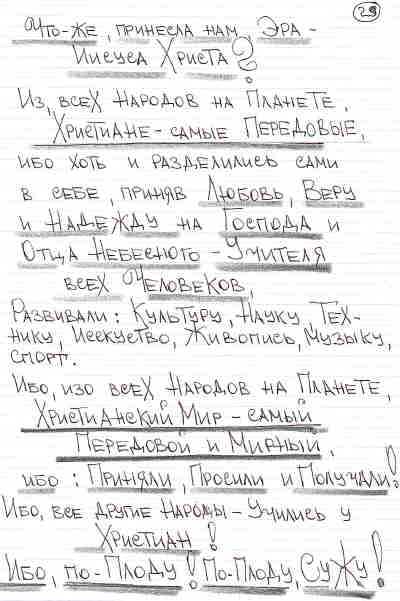 29
Что-же, принесла нам, Эра -
Иисуса Христа?
Из, всех народов на Планете,
Христиане - самые Передовые,
ибо хоть и разделились сами
в себе, приняв Любовь, Веру
и Надежду на Господа и
Отца Небесного - Учителя
всех Человеков,
Развивали: Культуру, Науку, Тех-
нику, Искуство, Живопись, Музыку,
спорт.
Ибо, изо всех Народов на Планете,
Христианский Мир - самый
Передовой и Мирный,
ибо: Приняли, Просили и Получали!
Ибо, все другие Народы - Учились у
Христиан!
Ибо, по-Плоду! По-Плоду, Сужу!